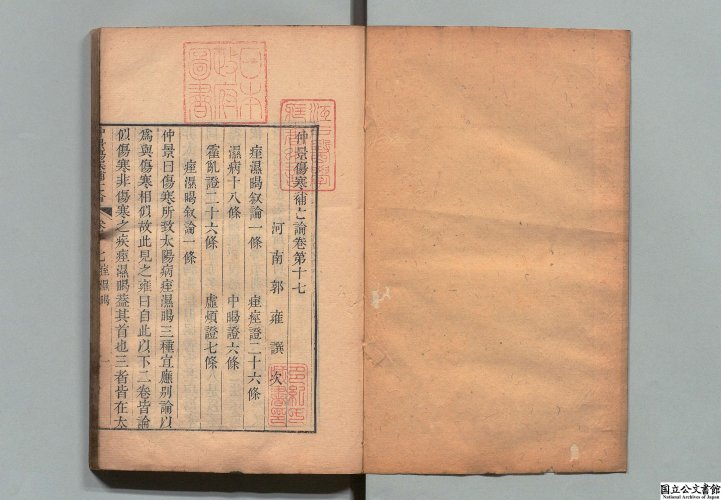 仲景傷寒補亡論卷第十七
河南郭雍撰次
痙濕暍叙論一條
痙痓證二十六條
濕病十八條
中暍證六條
霍亂證二十六條
虛煩證七條
痙濕暍叙論一條
仲景曰傷寒所致太陽病痙濕暍三種宜應别論以
爲與傷寒相似故此見之雍曰自此以下二卷皆論
似傷寒非傷寒之疾痙濕暍蓋其首也三者皆在太
日本
政府
圖書
国立公文書館
National Archives of Japan